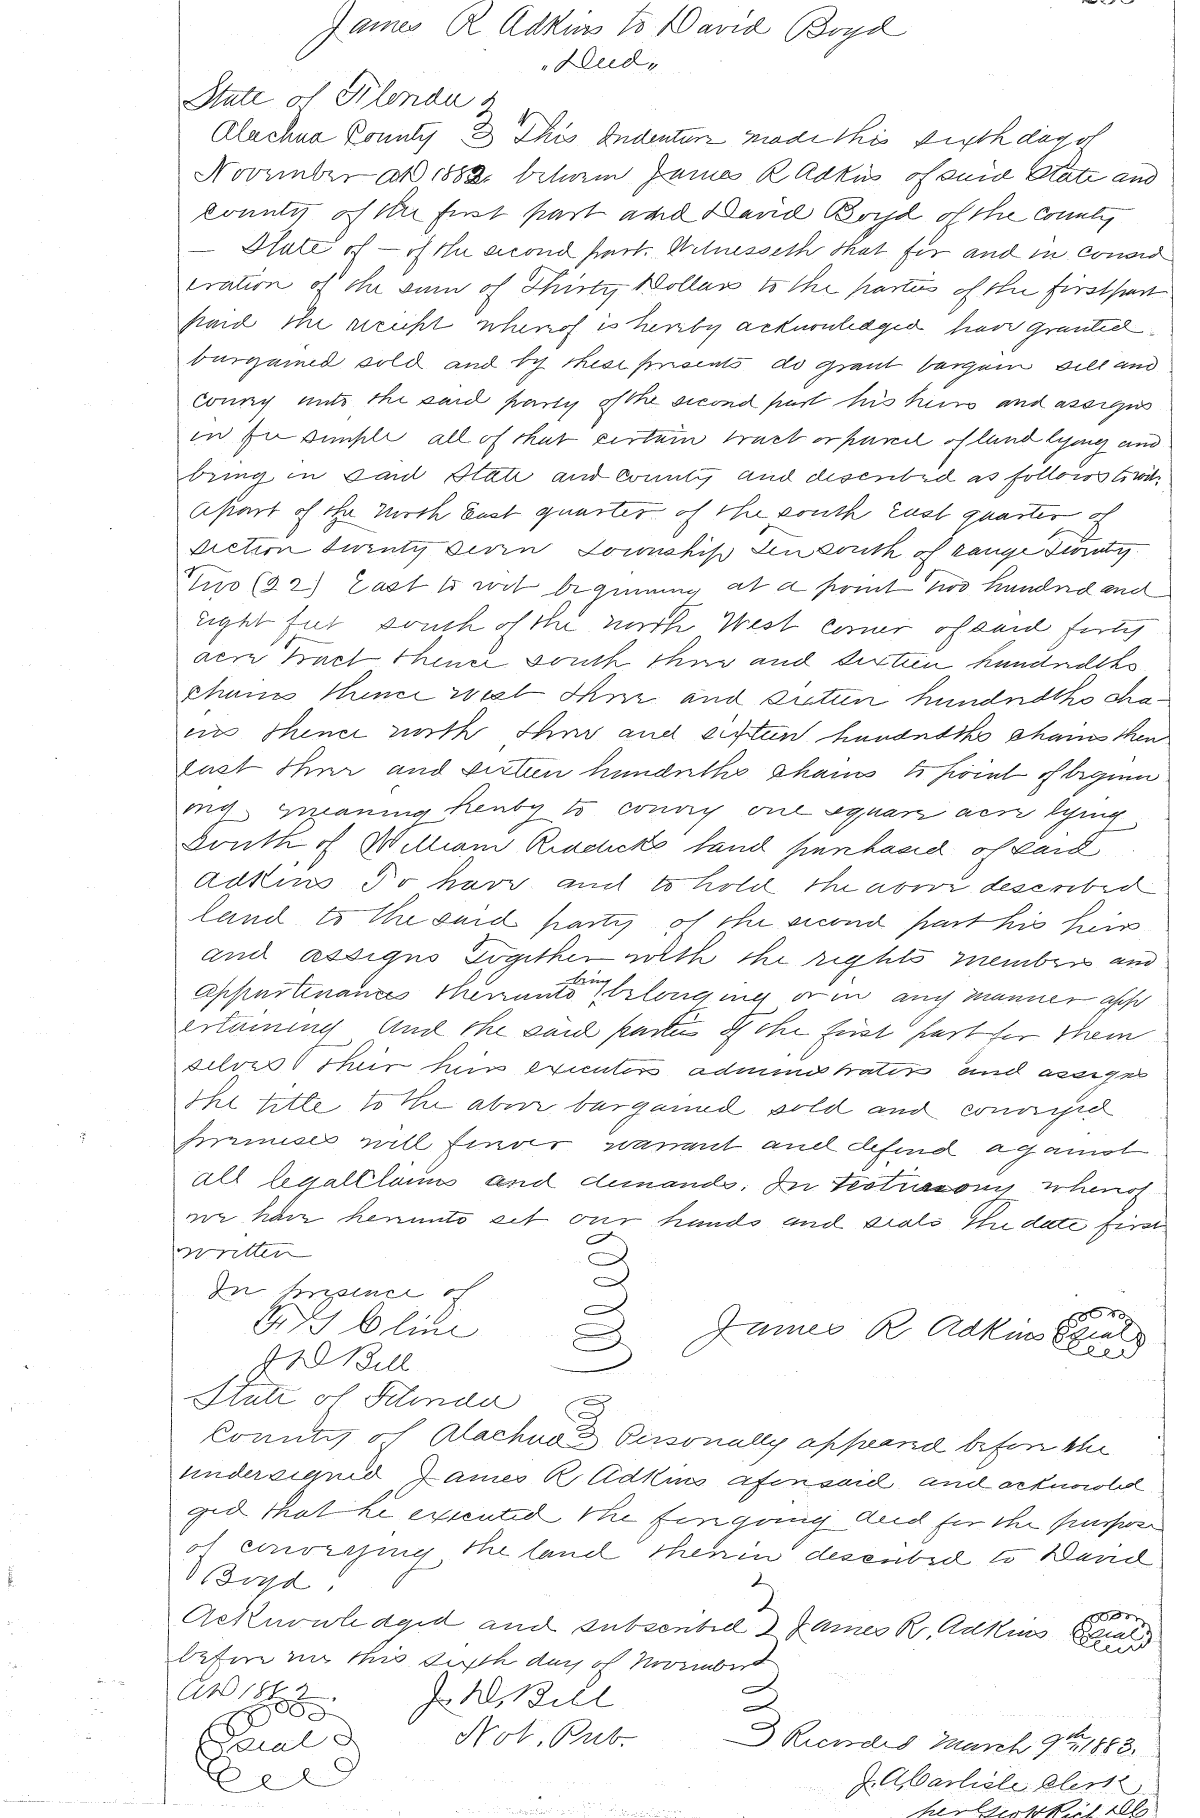 James R Adkins to David Boyd
"Deed"
State of Florida
Alachua County This Indenture made this sixth day of
November AD 1882. between James R Adkins of said State and
county of the first part and David Boyd of the county
— State of — of the second part. Witnesseth that for and in consid
eration of the sum of Thirty Dollars to the parties of the first part
paid the reciept whereof is hereby acknowledged have granted
bargained sold and by these presents do grant bargain sell and
convey unto the said party of the second part his heirs and assigns
in fee simple all of that certain tract or parcel of land lying and
being in said State and County and described as follows to wit.
A part of the North East quarter of the south East quarter of
section twenty seven township Ten south of range Twenty
Two (22) East to wit beginning at a point Two hundred and
eight feet south of the north West corner of said forty
acre Tract thence south three and sixteen hundredths
chains thence west three and sixteen hundredths cha-
ins thence north three and sixteen hundredths chains then
east three and sixteen hundreths chains to point of beginn
ing. meaning hereby to convey one square acre lying
South of William Reddicks land purchased of said
Adkins To have and to hold the above described
land to the said party of the second part his heirs
and assigns Together with the rights members and
appurtenances thereunto being belonging or in any manner app
ertaining And the said parties of the first part for them
selves their heirs executors administrators and assigns
the title to the above bargained sold and conveyed
premises will forever warrant and defend against
all legal Claims and demands. In testimony whereof
we have hereunto set our hands and seals the date first
written
In presence of
Cline James R Adkins Seal
J W Bell
State of Florida
County of Alachua Personally appeared before the
undersigned James R Adkins aforesaid and acknowled
ged that he executed the foregoing deed for the purpose
of conveying the land therein described to David
Boyd.
Acknowledged and subscribed James R. Adkins Seal
before me this sixth day of November
AD 1882. J. W. Bell
Seal Not. Pub. Recorded March 9th 1883.
J. A. Carlisle Clerk
per